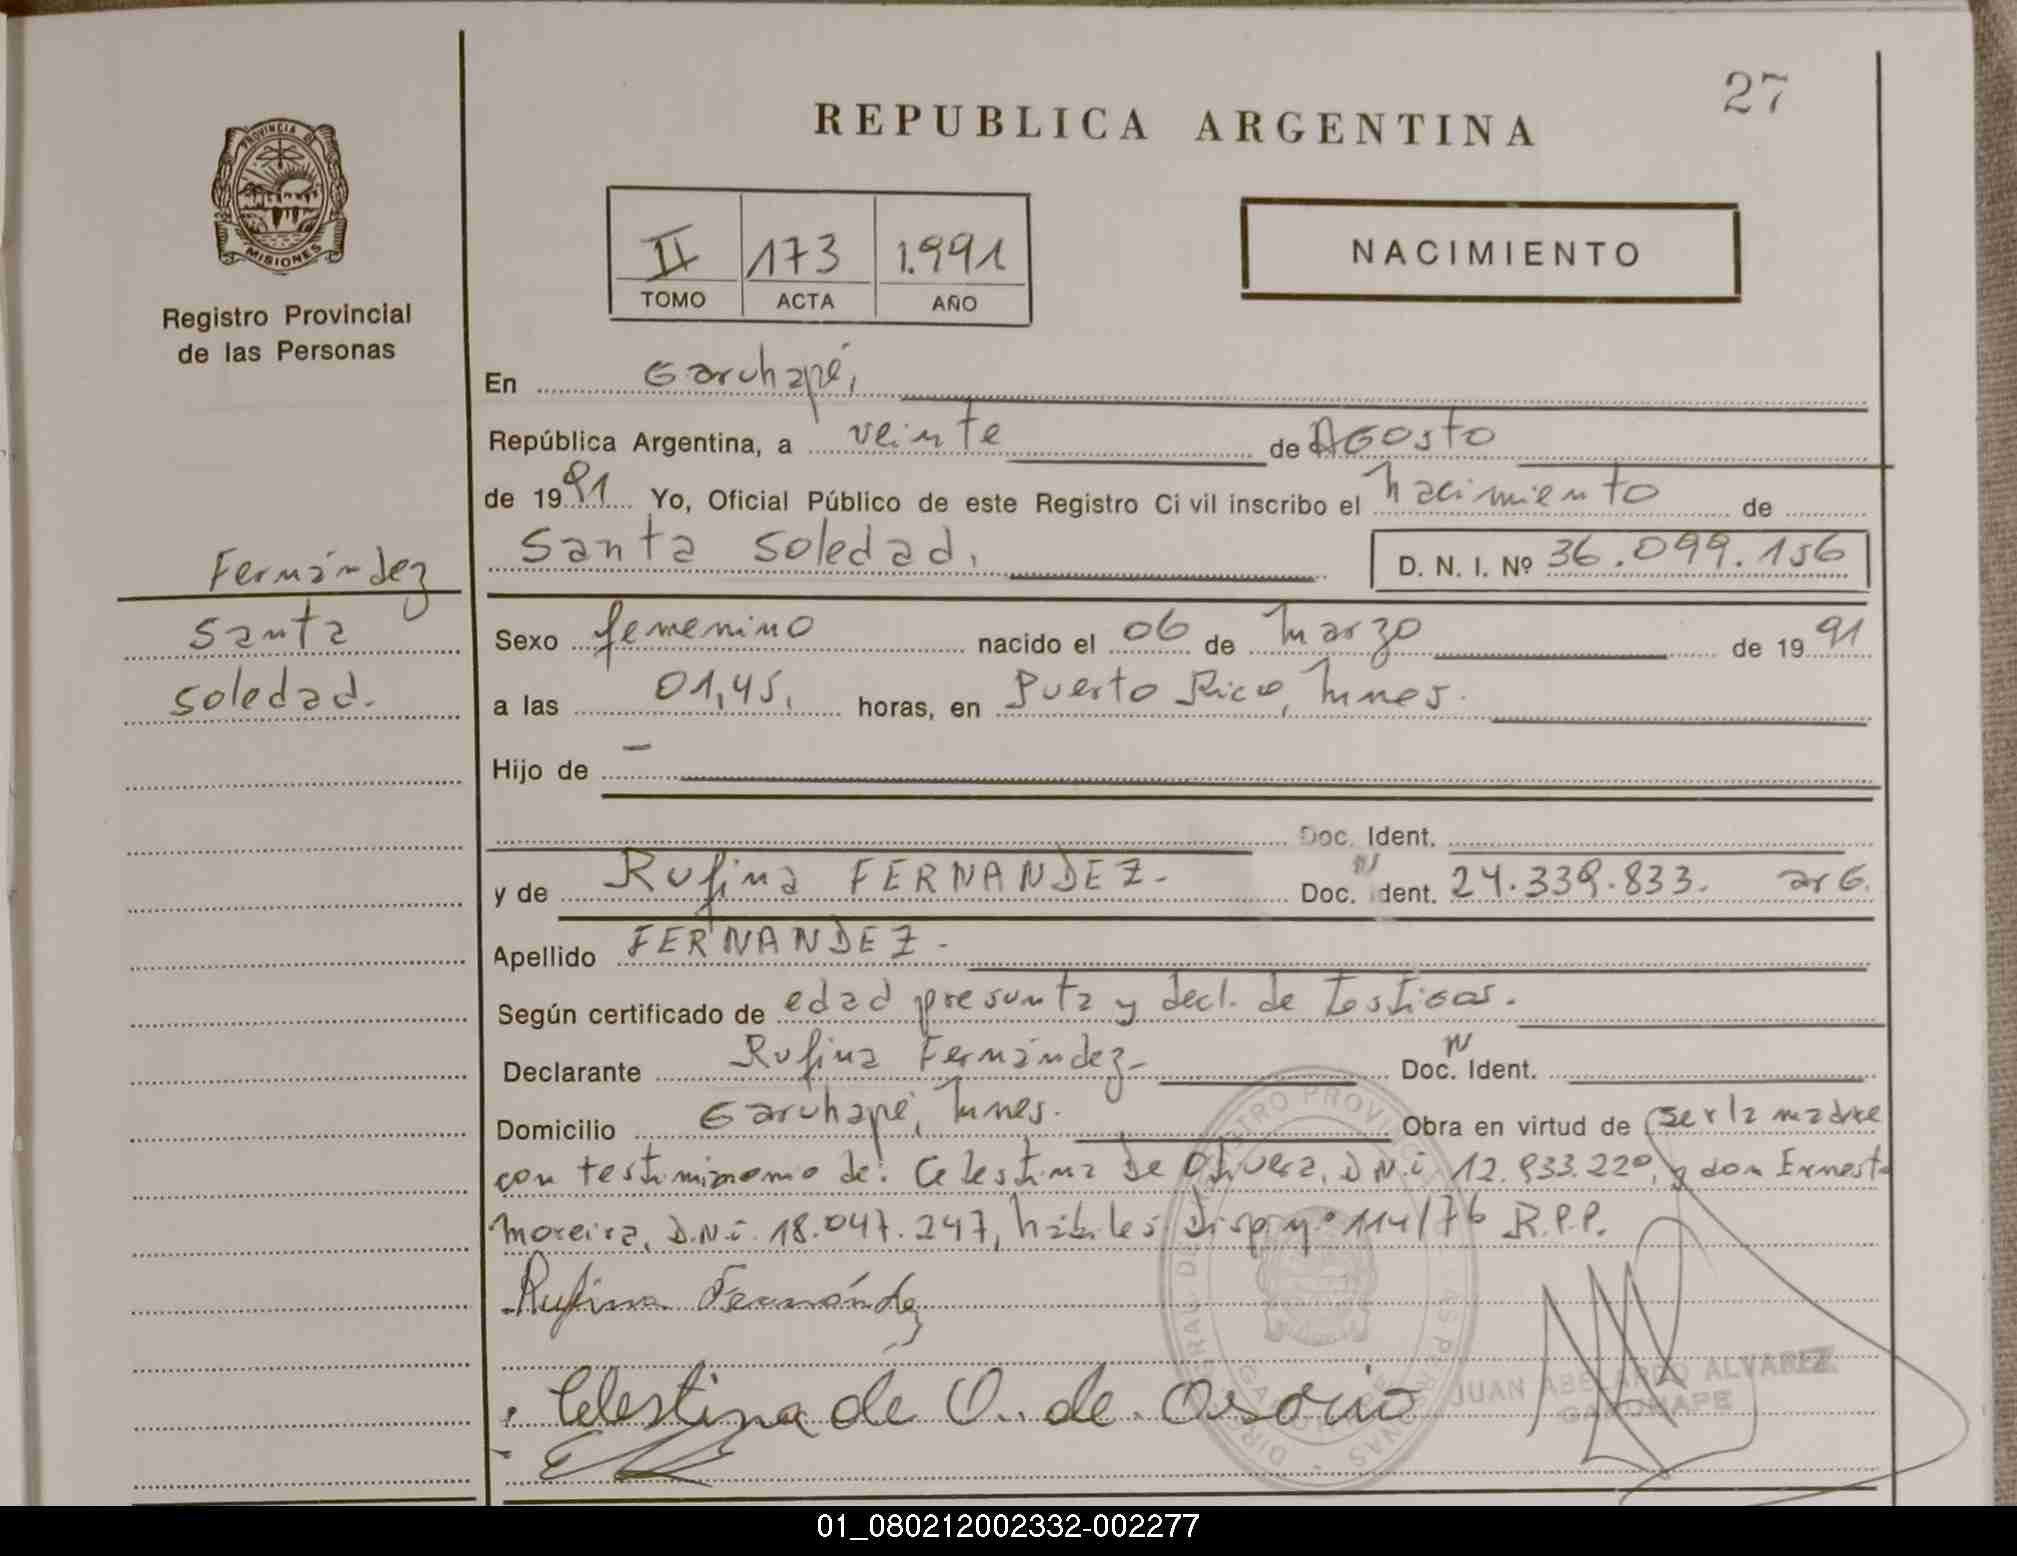 27
REPUBLICA ARGENTINA
PROVINCIA DE
MISIONES
Registro Provincial
de las Personas
II 173 1.991
TOMO ACTA AÑO
NACIMIENTO
En Garuhapé,
República Argentina, a veinte de Agosto
de 1991 Yo, Oficial Público de este Registro Civil inscribo el nacimiento de
Santa Soledad, D. N. I. Nº 36.099.156
Fernández
Santa
Soledad.
Sexo femenino nacido el 06 de Marzo de 1991
a las 01,45, horas, en Puerto Rico, Mnes.
Hijo de —
Doc. Ident.
y de Rufina FERNANDEZ.- Doc. Ident. 24.339.833. arG.
Apellido FERNANDEZ.-
Según certificado de edad presunta y decl. de testigos.
Declarante Rufina Fernández- Doc. Ident.
Domicilio Garuhapé, Mnes. Obra en virtud de ser la madre
con de: Celestina De Olivera, D.N.i. 12.933.220, y don Ernesto
Moreira, D.N.i. 18.047.247, hábiles Disp nº 114/76 R.P.P.
Rufina Fernández
Celestina de O. de Osorio
JUAN ABELARDO ALVAREZ
GARUHAPE
01_080212002332-002277